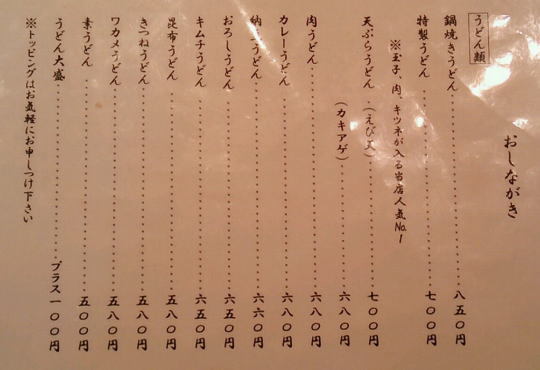 おしながき
うどん類
鍋焼きうどん 八五〇円
特製うどん 七〇〇円
※玉子、肉、キツネが入る当店人気No.1
天ぷらうどん (えび天) 七〇〇円
(カキアゲ) 六八〇円
肉うどん 六八〇円
カレーうどん 六八〇円
納豆うどん 六六〇円
おろしうどん 六五〇円
キムチうどん 六五〇円
昆布うどん 五八〇円
きつねうどん 五八〇円
ワカメうどん 五八〇円
素うどん 五〇〇円
うどん大盛 プラス一〇〇円
※トッピングはお気軽にお申しつけ下さい